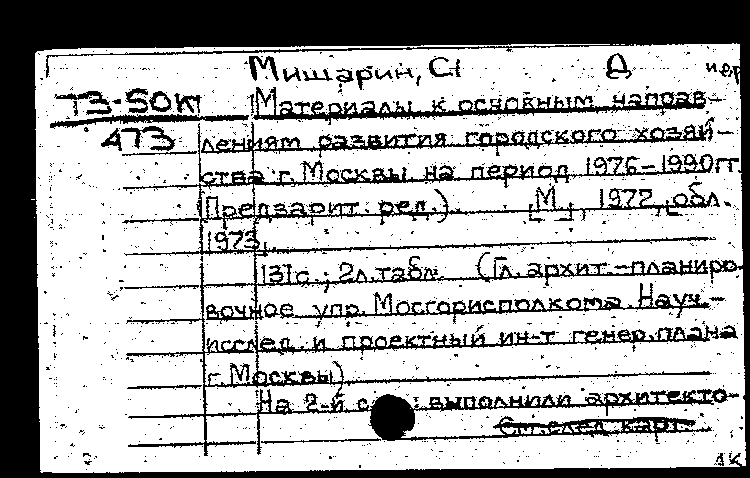 Мишарин, С. Д
Т3-50К Материалы к основным направ-
473 лениям развития городского хозяй-
ства г. Москвы на период 1976-1990гг.
(Предварит. ред.). [М.], 1972, [обл.
1973].
131с.; 2л. табл. (Гл. архит.-планиро-
вочное упр. Мосгорисполкома. Науч.-
исслед. и проектный ин-т генер. плана
г. Москвы)
На 2-й с : выполнили архитекто-
См. след карт.